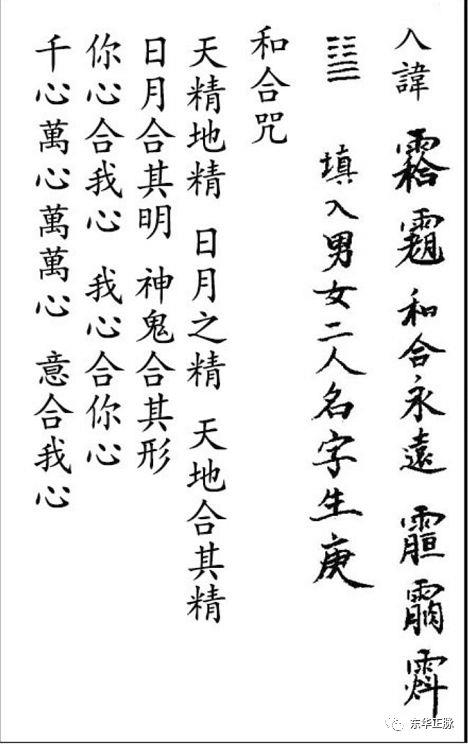 入諱 和合永遠
填入男女二人名字生庚
和合咒
天精地精 日月之精 天地合其精
日月合其明 神鬼合其形
你心合我心 我心合你心
千心萬心萬萬心 意合我心
东华正脉